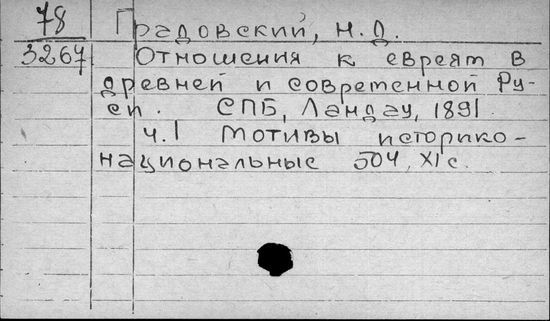 78 Градовский, Н. Д.
3267 Отношения к евреям в
древней и современной Ру-
си. СПБ, Ландау, 1891.
ч.1 Мотивы историко-
национальные 504, XI с.